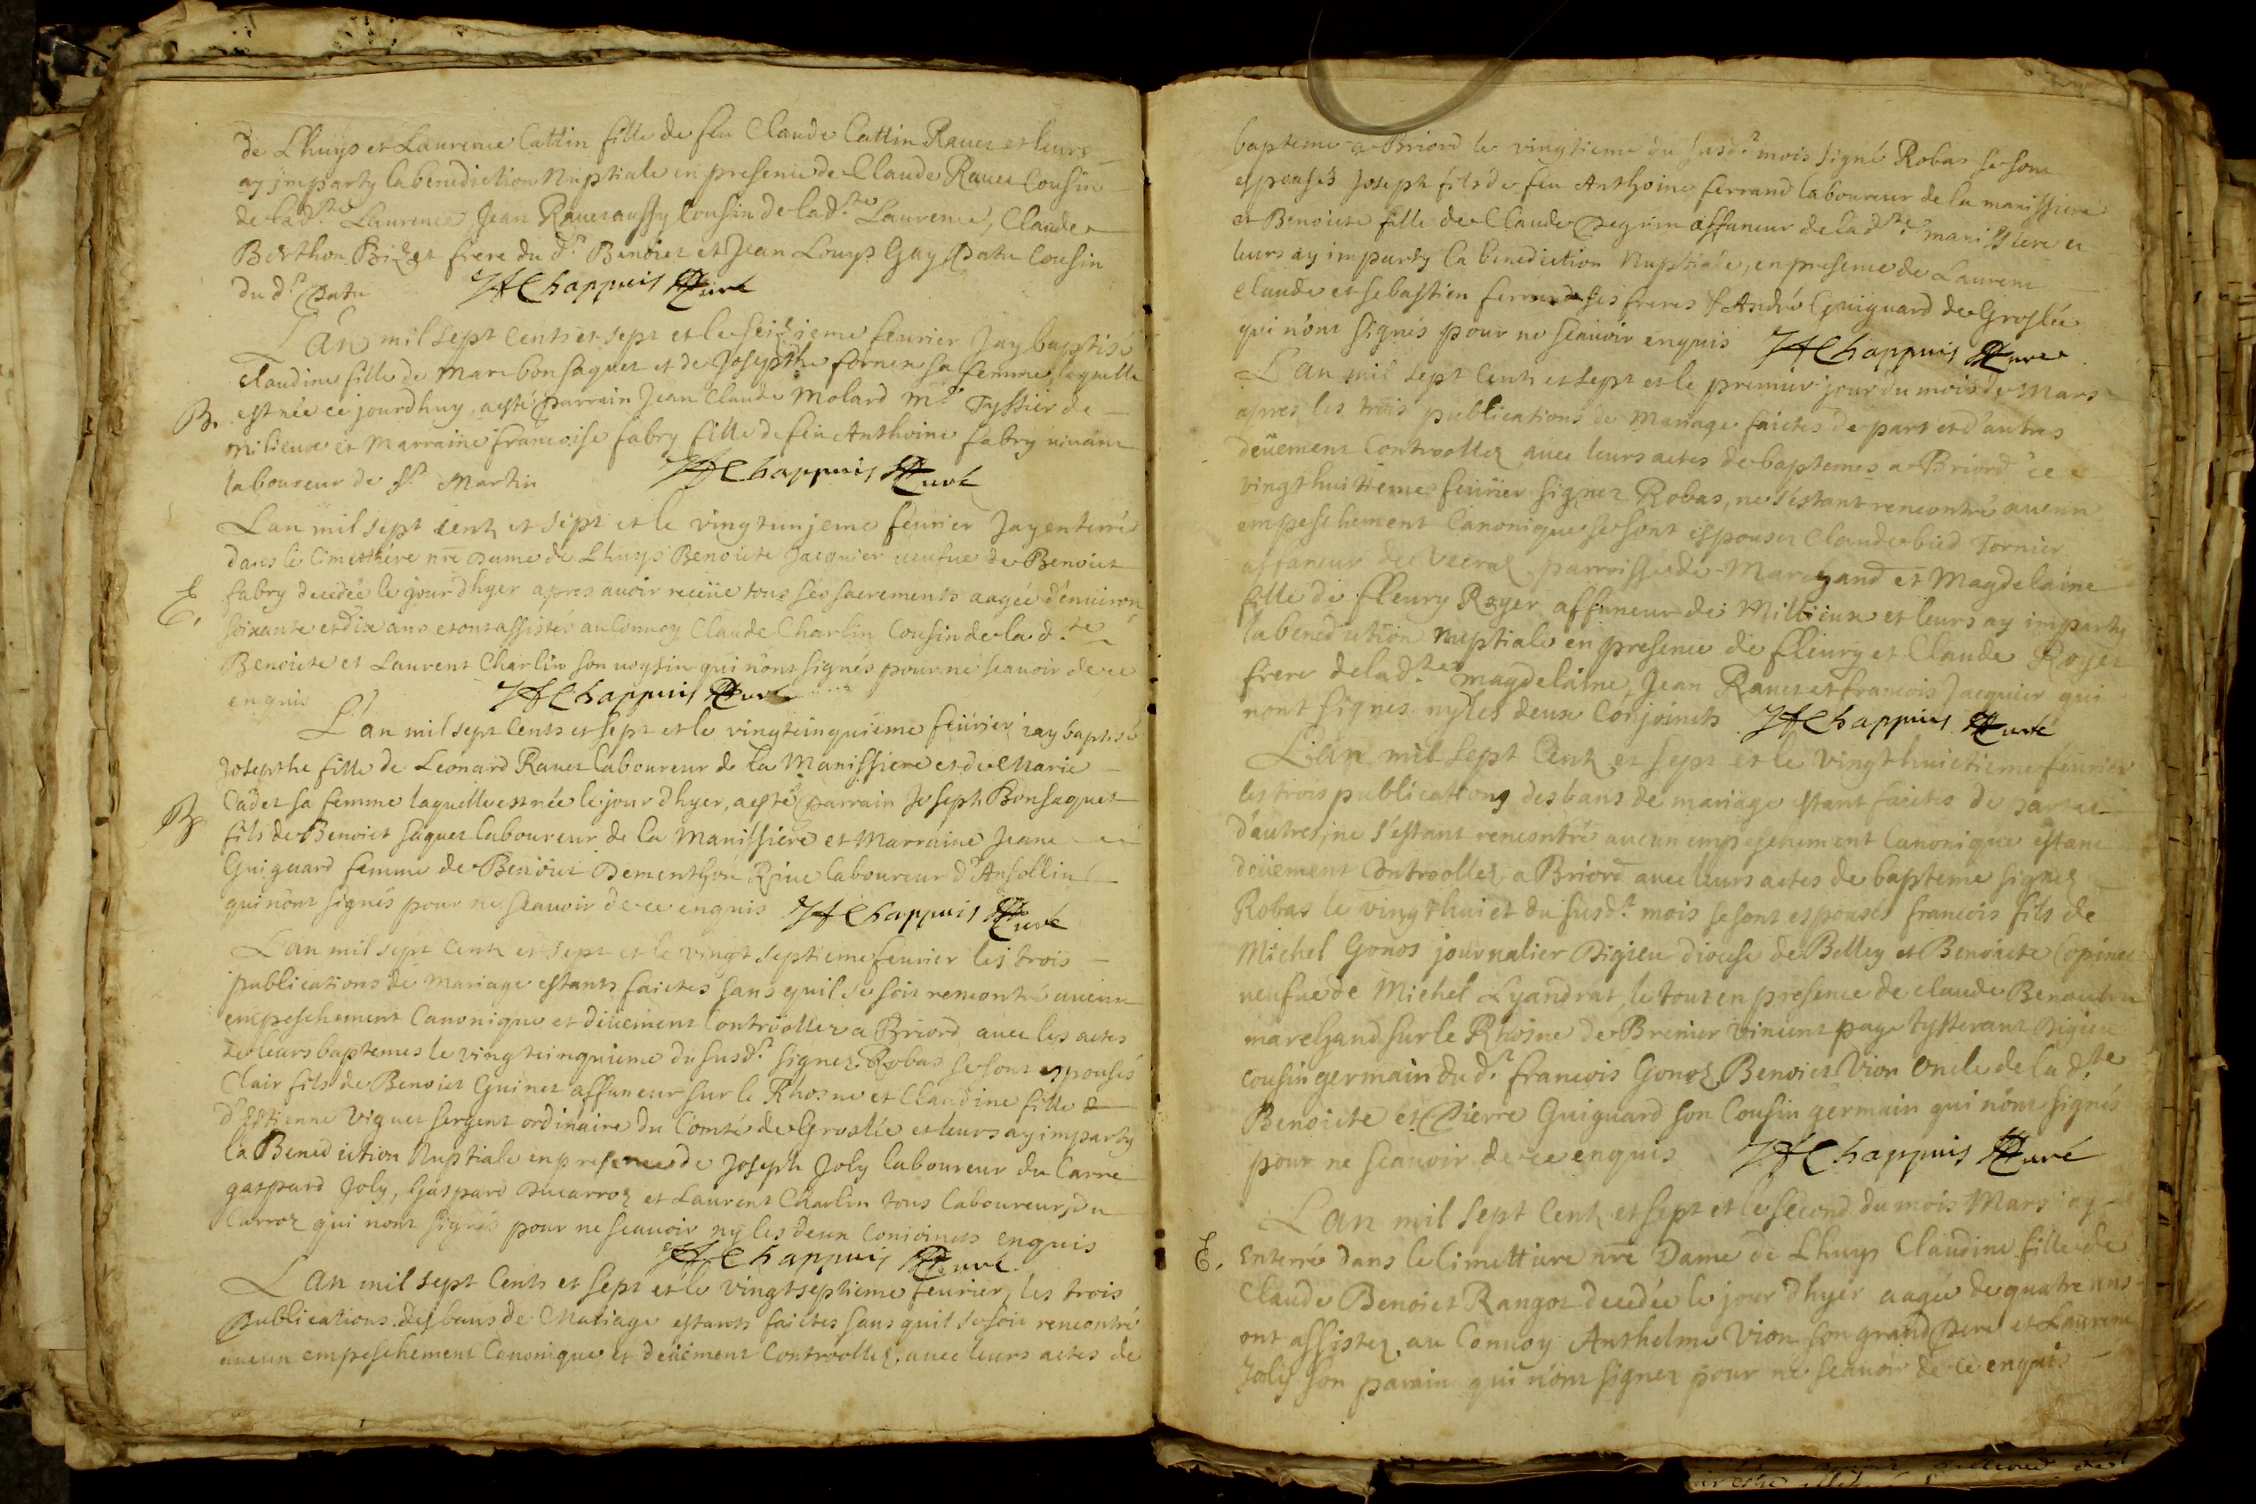 de Lhuys et Laurence Cattin fille de feu Claude Cattin Ravet et leurs
ay imparty la benediction Nuptiale en presence de Claude Ravet Cousin
de lad.te Laurence, Jean Ravet aussy Cousin de lad.te Laurence, Claude
Berthon Bizet frere du d.t Benoict et Jean Louys Guy Patu Cousin
du d.t Patu JFChappuis Curé
L'an mil sept Cents et sept et le seizieme fevrier Jay baptisé
Claudine fille de Marc bon saquet et de Josepthe fornier sa femme laquelle
B. est née ce jourdhuy, a esté parrain Jean Claude Molard M.e Tyssier de
milieux et Marraine francoise fabry fille de feu Anthoine fabry vivant
laboureur de S.t Martin JFChappuis Curé
Lan mil sept Cents et sept et le vingtunjeme fevrier Jay enterré
dans le Cimethiere nre Dame de Lhuys Benoicte Jacquier veufve de Benoict
E. fabry decedée le jour dhyer apres avoir receüe tous ses sacrements aagée d'environ
soixante et dix ans et ont assistés au Convoy Claude Charlin Cousin de la d.te
Benoicte et Laurent Charlin son voysin qui n'ont signés pour ne scavoir de ce
enquis JFChappuis Curé
L'an mil sept Cents et sept et le vingtcinquieme fevrier jay baptisé
Josepthe fille de Leonard Ravet laboureur de la Manissiere et de Marie
Cadet sa femme laquelle est née le jour dhyer, a esté parrain Joseph Bonsaquet
B fils de Benoict saquet laboureur de la Manissiere et Marraine Jeane
Guiguard femme de Benoict Dementhon Rive laboureur d'Ansollin
qui n'ont signés pour ne scavoir de ce enquis JFChappuis Curé
Lan mil sept Cents et sept et le vingt septieme fevrier les trois
publications de mariage estants faictes sans quil se soit rencontré aucun
empeschement Canonique et deüement Controollez a Briord avec les actes
de leurs baptemes le vingtcinquieme du susd.t signez Robas se sont espousés
Clair fils de Benoict Guinet affaneur sur le Rhosne et Claudine fille
d'Estienne Viguet sergent ordinaire du Comté de Groslée et leurs ay imparty
la Benediction Nuptiale en presence de Joseph Joly laboureur du Carre
gaspard Joly, Gaspard Ducarroz et Laurent Charlin tous laboureurs du
Carroz qui n'ont signés pour ne scavoir ny les deux Conioincts enquis
JFChappuis Curé
L'an mil sept Cents et sept et le vingtseptieme fevrier, les trois
Publications des bans de Mariage estants faictes sans quil se soit rencontré
aucun empeschement Canonique et deüement Controollez, avec leurs actes de
bapteme a Briord le vingtieme du susd.t mois signé Robas se sont
espousés Joseph fils de feu Anthoine ferrand laboureur de la manissiere
et Benoicte fille de Claude Pegrin affaneur de lad.te manissiere et
leurs ay imparty la benediction Nuptiale, en presence de Laurent
Claude et Sebastien ferrand ses freres & André Guiguard de Groslée
qui n'ont signés pour ne scavoir enquis JFChappuis Curé
L'an mil sept Cents et sept et le premier jour du mois de Mars
apres les trois publications de Mariage faictes de part et d'autres
deüement Controollez avec leurs actes de baptemes a Briord ce
vingthuitieme fevrier signez Robas, ne s'estant rencontré aucun
empeschement Canonique se sont espousez Claude bied Tornier
affaneur de Veeraz parroisse de Marchand et Magdelaine
fille de fleury Royer affaneur de Millieux et leurs ay imparty
la benediction nuptiale en presence de fleury et Claude Royer
frere de lad.te magdelaine, Jean Ravet et francois Jacquier qui
n'ont signes ny les deux Conjoincts JFChappuis Curé
L'an mil sept Cents et sept et le vingt huictieme fevrier
les trois publications des bans de mariage estant faictes de part et
d'autres, ne s'estant rencontré aucun empeschement Canonique estant
deüement Controollez a Briord avec leurs actes de bapteme signez
Robas le vingt huict du susd.t mois se sont espousés francois fils de
Michel Gonos journalier Digieu diocese de Belley et Benoicte Copinet
veufve de Michel Lyandrat, le tout en presence de claude Benoict
marchand sur le Rhosne de Brenier vincent page tysserant Digieu
cousin germain du d.t francois Gonoz, Benoict Vion Oncle de la d.te
Benoicte et Pierre Guiguard son Cousin germain qui n'ont signés
pour ne scavoir de ce enquis JFChappuis Curé
L'an mil sept Cents et sept et le second du mois Mars jay
E. Enterré dans le Cimettiere nre Dame de Lhuys Claudine fille de
Claude Benoict Rangot decedée le jour dhyer aagée de quatre ans
ont assistez au Convoy Anthelme Vion son grand Pere et Laurent
Joly son parain qui n'ont signez pour ne scavoir de ce enquis